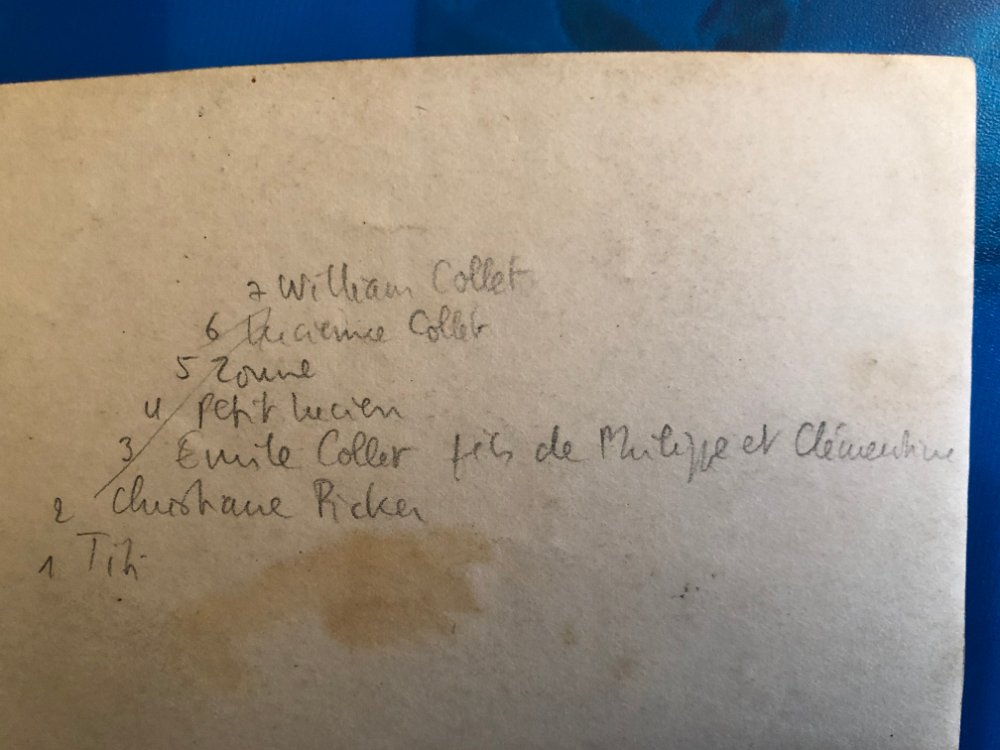 7 William Collet
6 Lucienne Collet
5 Zonne
4 petit Lucien
3 Emile Collet fils de Philippe et Clémentine
2 Christiane Ricker
1 Titi